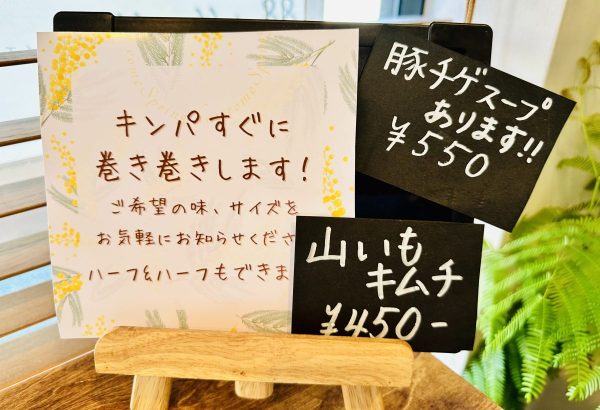 キンパすぐに
巻き巻きします!
ご希望の味、サイズを
お気軽にお知らせくださ
ハーフ&ハーフもできま
豚チゲスープ
あります!!
¥550
山いも
キムチ
¥450-